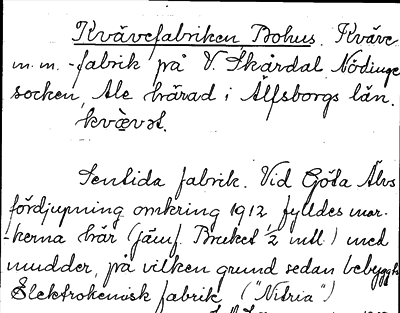 Kvävefabriken Bohus. Kväve
m.m. -fabrik på V. Skårdal Nödinge
socken, Ale härad i Älfsborgs län.
kvævət.
Sentida fabrik. Vid Göta Älvs
fördjupning omkring 1912 fylldes mar-
-kerna här (jämf. Bruket 2 mtl.) med
mudder, på vilken grund sedan bebyggts
Elektrokemisk fabrik ("Nitria")